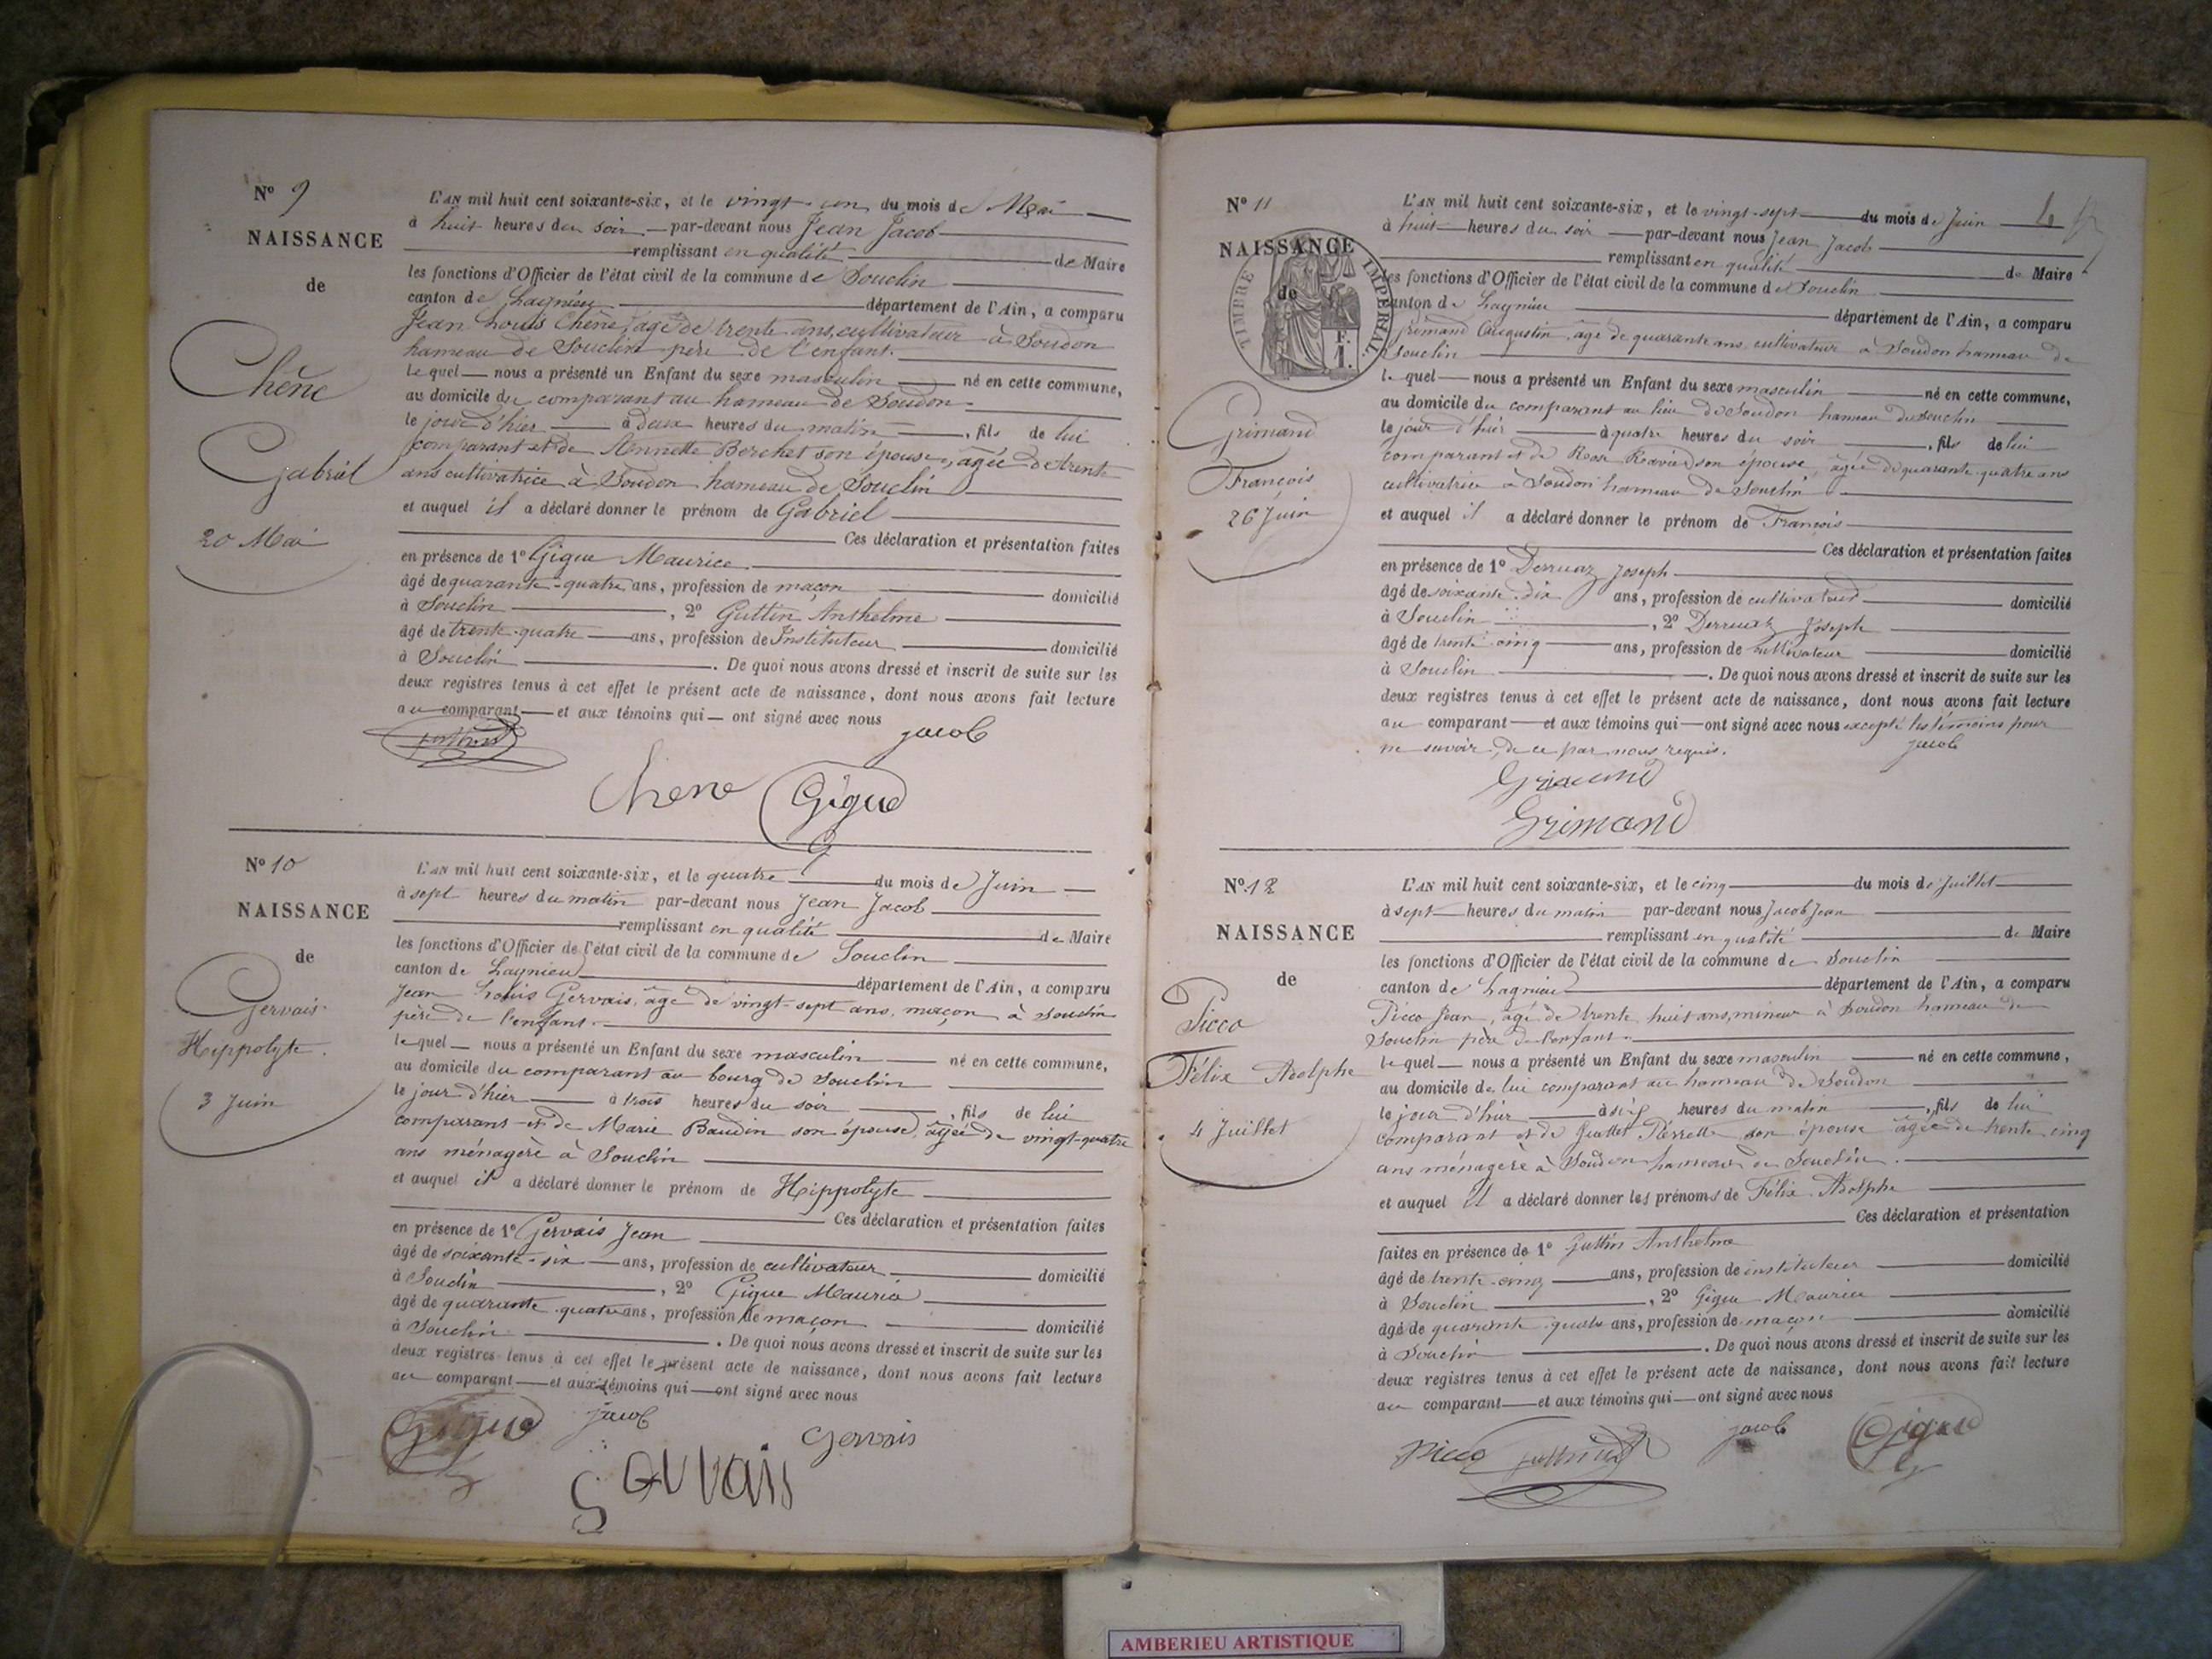 N° 9
NAISSANCE
de
Chêne
Gabriel
20 Mai
L'AN mil huit cent soixante-six, et le vingt-un du mois de Mai
à huit heures du soir par-devant nous Jean Jacob
remplissant en qualité de Maire
les fonctions d'Officier de l'état civil de la commune de Souclin
canton de Lagnieu département de l'Ain, a comparu
Jean Louis Chêne, âgé de trente ans, cultivateur à Soudon
hameau de Souclin père de l'enfant.
lequel nous a présenté un Enfant du sexe masculin né en cette commune,
au domicile du comparant au hameau de Soudon
le jour d'hier à deux heures du matin, fils de lui
comparant et de Annette Berchet son épouse, âgée de trente
ans cultivatrice à Soudon hameau de Souclin
et auquel il a déclaré donner le prénom de Gabriel
Ces déclaration et présentation faites
en présence de 1° Gigue Maurice
âgé de quarante-quatre ans, profession de maçon domicilié
à Souclin, 2° Guttin Anthelme
âgé de trente-quatre ans, profession de Instituteur domicilié
à Souclin. De quoi nous avons dressé et inscrit de suite sur les
deux registres tenus à cet effet le présent acte de naissance, dont nous avons fait lecture
au comparant et aux témoins qui ont signé avec nous
Jacob
Chene Gigue
N° 10
NAISSANCE
de
Gervais
Hippolyte.
3 Juin
L'AN mil huit cent soixante-six, et le quatre du mois de Juin
à sept heures du matin par-devant nous Jean Jacob
remplissant en qualité de Maire
les fonctions d'Officier de l'état civil de la commune de Souclin
canton de Lagnieu département de l'Ain, a comparu
Jean Louis Gervais, âgé de vingt-sept ans, maçon à Souclin
père de l'enfant.
lequel nous a présenté un Enfant du sexe masculin né en cette commune,
au domicile du comparant au bourg de Souclin
le jour d'hier à trois heures du soir, fils de lui
comparant et de Marie Baudin son épouse, âgée de vingt-quatre
ans ménagère à Souclin
et auquel il a déclaré donner le prénom de Hippolyte
Ces déclaration et présentation faites
en présence de 1° Gervais Jean
âgé de soixante-six ans, profession de cultivateur domicilié
à Souclin, 2° Gigue Maurice
âgé de quarante-quatre ans, profession de maçon domicilié
à Souclin. De quoi nous avons dressé et inscrit de suite sur les
deux registres tenus à cet effet le présent acte de naissance, dont nous avons fait lecture
au comparant et aux témoins qui ont signé avec nous
Gigue Jacob
Gervais
Gervais
N° 11
NAISSANCE
de
TIMBRE IMPERIAL.
Grimand
François
26 Juin
4
L'AN mil huit cent soixante-six, et le vingt-sept du mois de Juin
à huit heures du soir par-devant nous Jean Jacob
remplissant en qualité de Maire
les fonctions d'Officier de l'état civil de la commune de Souclin
canton de Lagnieu département de l'Ain, a comparu
Grimand Augustin, âgé de quarante ans, cultivateur à Soudon hameau de
Souclin
lequel nous a présenté un Enfant du sexe masculin né en cette commune,
au domicile du comparant au lieu de Soudon hameau de Souclin
le jour d'hier à quatre heures du soir, fils de lui
comparant et de Rose son épouse, âgée de quarante-quatre ans
cultivatrice à Soudon hameau de Souclin
et auquel il a déclaré donner le prénom de François
Ces déclaration et présentation faites
en présence de 1° Derruaz Joseph
âgé de soixante-dix ans, profession de cultivateur domicilié
à Souclin, 2° Derruaz Joseph
âgé de trente-cinq ans, profession de cultivateur domicilié
à Souclin. De quoi nous avons dressé et inscrit de suite sur les
deux registres tenus à cet effet le présent acte de naissance, dont nous avons fait lecture
au comparant et aux témoins qui ont signé avec nous excepté les témoins pour
ne savoir, de ce par nous requis.
Jacob
Grimand
Grimand
N° 12
NAISSANCE
de
Picco
Félix Adolphe
4 Juillet
L'AN mil huit cent soixante-six, et le cinq du mois de Juillet
à sept heures du matin par-devant nous Jacob Jean
remplissant en qualité de Maire
les fonctions d'Officier de l'état civil de la commune de Souclin
canton de Lagnieu département de l'Ain, a comparu
Picco Jean, âgé de trente huit ans, mineur à Soudon hameau de
Souclin père de l'enfant.
lequel nous a présenté un Enfant du sexe masculin né en cette commune,
au domicile de lui comparant au hameau de Soudon
le jour d'hier à heures du matin, fils de lui
comparant et de Pierrette son épouse âgée de trente cinq
ans ménagère à Soudon hameau de Souclin.
et auquel il a déclaré donner les prénoms de Félix Adolphe
Ces déclaration et présentation
faites en présence de 1° Guttin Anthelme
âgé de trente-cinq ans, profession de instituteur domicilié
à Souclin, 2° Gigue Maurice
âgé de quarante-quatre ans, profession de maçon domicilié
à Souclin. De quoi nous avons dressé et inscrit de suite sur les
deux registres tenus à cet effet le présent acte de naissance, dont nous avons fait lecture
au comparant et aux témoins qui ont signé avec nous
Picco Guttin Jacob Gigue
AMBERIEU ARTISTIQUE